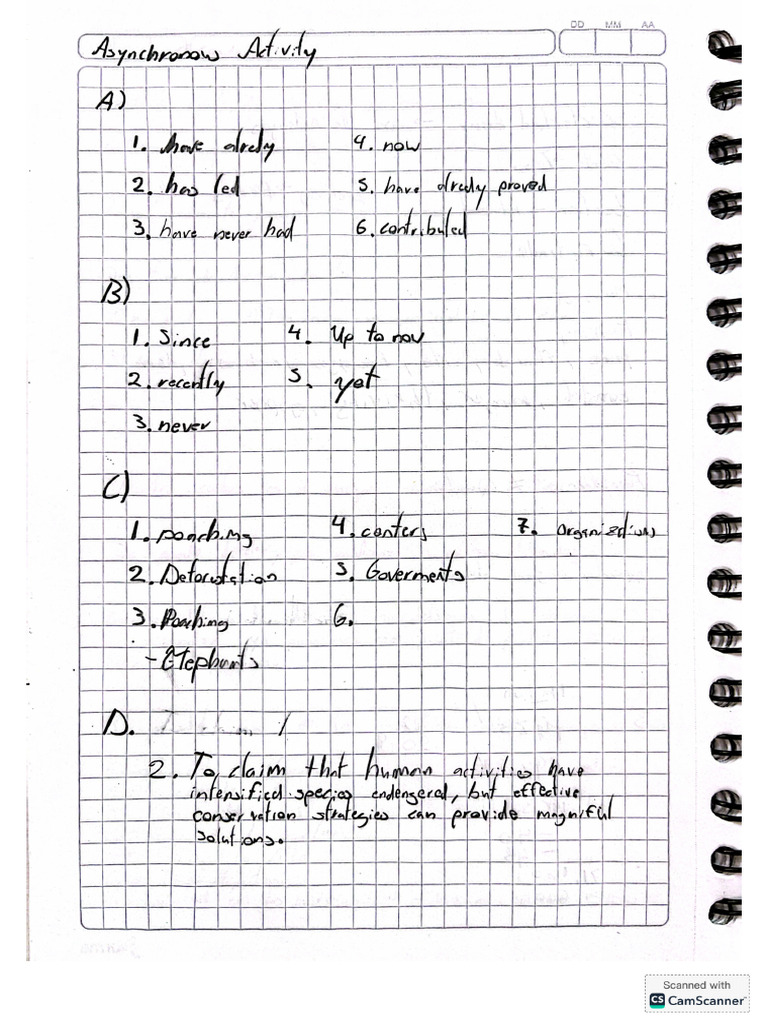 DD MM AA
Asynchronous Activity
A)
1. have alredy
4. now
2. has led
5. have alredy proved
3. have never had
6. contributed
B)
1. Since
4. Up to now
2. recently
5. yet
3. never
C)
1. poaching
4. centers
7. Organizations
2. Deforestation
5. Goverments
3. Poaching
6.
- Elephants
D.
2. To claim that human activities have
intensified species endengered, but effective
conservation strategies can provide magniful
solutions.
Scanned with
CS CamScanner